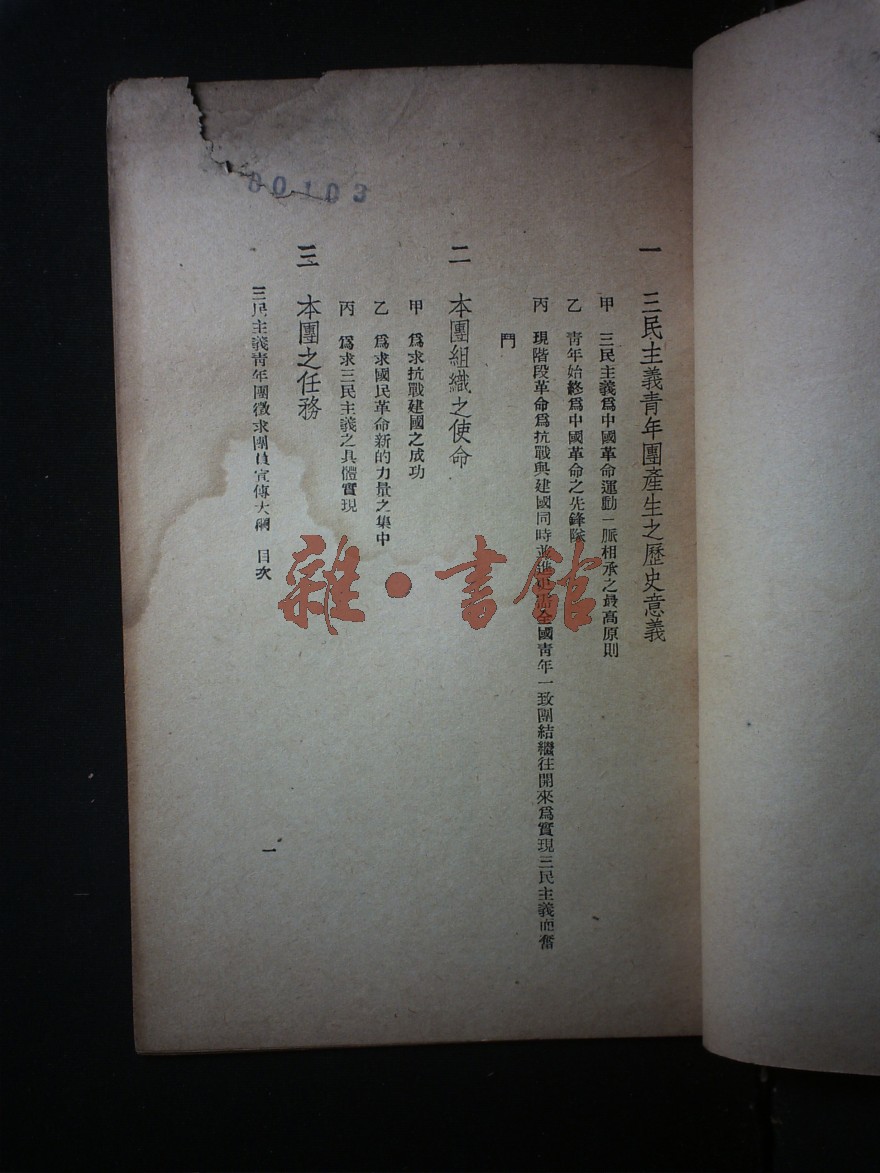 一　三民主義青年團產生之歷史意義
甲　三民主義爲中國革命運動一脈相承之最高原則
乙　青年始終爲中國革命之先鋒隊
丙　現階段革命爲抗戰與建國同時並進全國青年一致團結繼往開來爲實現三民主義而奮
鬥
二　本團組織之使命
甲　爲求抗戰建國之成功
乙　爲求國民革命新的力量之集中
丙　爲求三民主義之具體實現
三　本團之任務
三民主義青年團徵求團員宣傳大綱　目次
一
00103
雜·書館